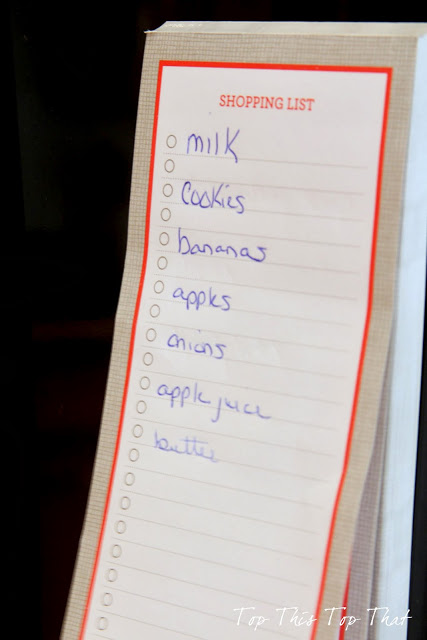 SHOPPING LIST
milk
Cookies
bananas
apples
onions
apple juice
butter
Top This Top That